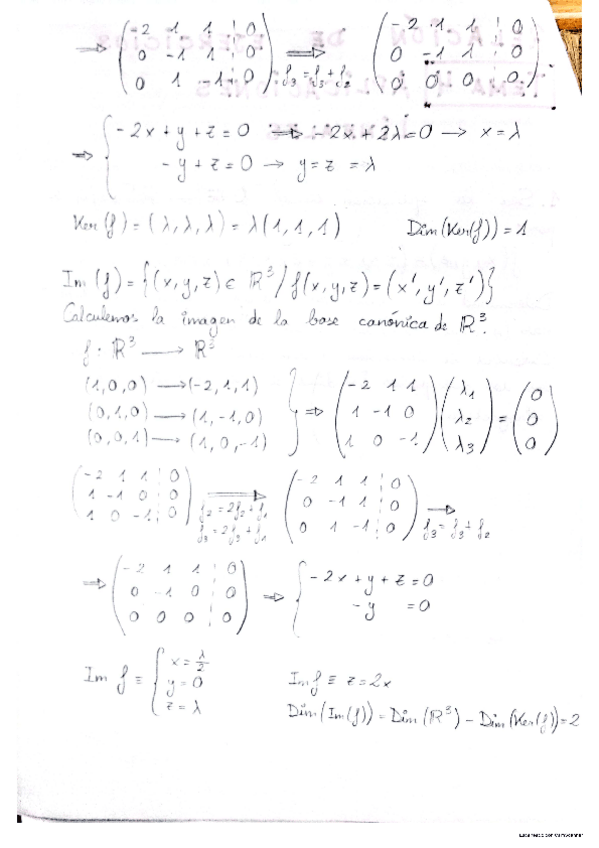 ⟹ (-2 1 1 ¦ 0; 0 -1 1 ¦ 0; 0 1 -1 ¦ 0) ⟹ f₃ = f₃ + f₂ (-2 1 1 ¦ 0; 0 -1 1 ¦ 0; 0 0 0 ¦ 0).
⟹ { -2x + y + z = 0 → -2x + 2λ = 0 → x = λ
-y + z = 0 → y = z = λ
Ker(f) = (λ, λ, λ) = λ(1, 1, 1) Dim(Ker(f)) = 1
Im(f) = {(x, y, z) ∈ ℝ³ / f(x, y, z) = (x', y', z')}
Calculemos la imagen de la base canónica de ℝ³.
f: ℝ³ ⟶ ℝ³
(1, 0, 0) ⟶ (-2, 1, 1)
(0, 1, 0) ⟶ (1, -1, 0)
(0, 0, 1) ⟶ (1, 0, -1)
} ⟹ (-2 1 1; 1 -1 0; 1 0 -1) (λ₁; λ₂; λ₃) = (0; 0; 0)
(-2 1 1 ¦ 0; 1 -1 0 ¦ 0; 1 0 -1 ¦ 0) ⟹ f₂ = 2f₂ + f₁ f₃ = 2f₃ + f₁ (-2 1 1 ¦ 0; 0 -1 1 ¦ 0; 0 1 -1 ¦ 0) ⟹ f₃ = f₃ + f₂
⟹ (-2 1 1 ¦ 0; 0 -1 0 ¦ 0; 0 0 0 ¦ 0) ⟹ { -2x + y + z = 0
-y = 0
Im f ≡ { x = λ/2
y = 0
z = λ
Im f ≡ z = 2x
Dim(Im(f)) = Dim(ℝ³) - Dim(Ker(f)) = 2